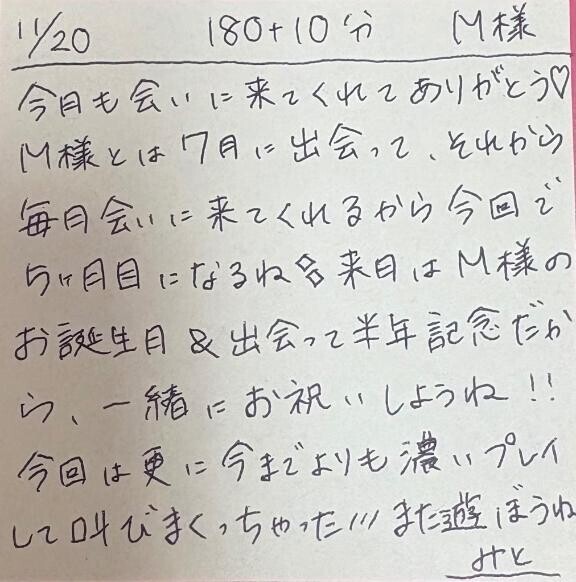 11/20 180+10分 M様
今月も会いに来てくれてありがとう♡
M様とは7月に出会って、それから
毎月会いに来てくれるから今回で
5ヶ月目になるね 来月はM様の
お誕生月&出会って半年記念だか
ら、一緒にお祝いしようね!!
今回は更に今までよりも濃いプレイ
して叫びまくっちゃった/// また遊ぼうね
みと